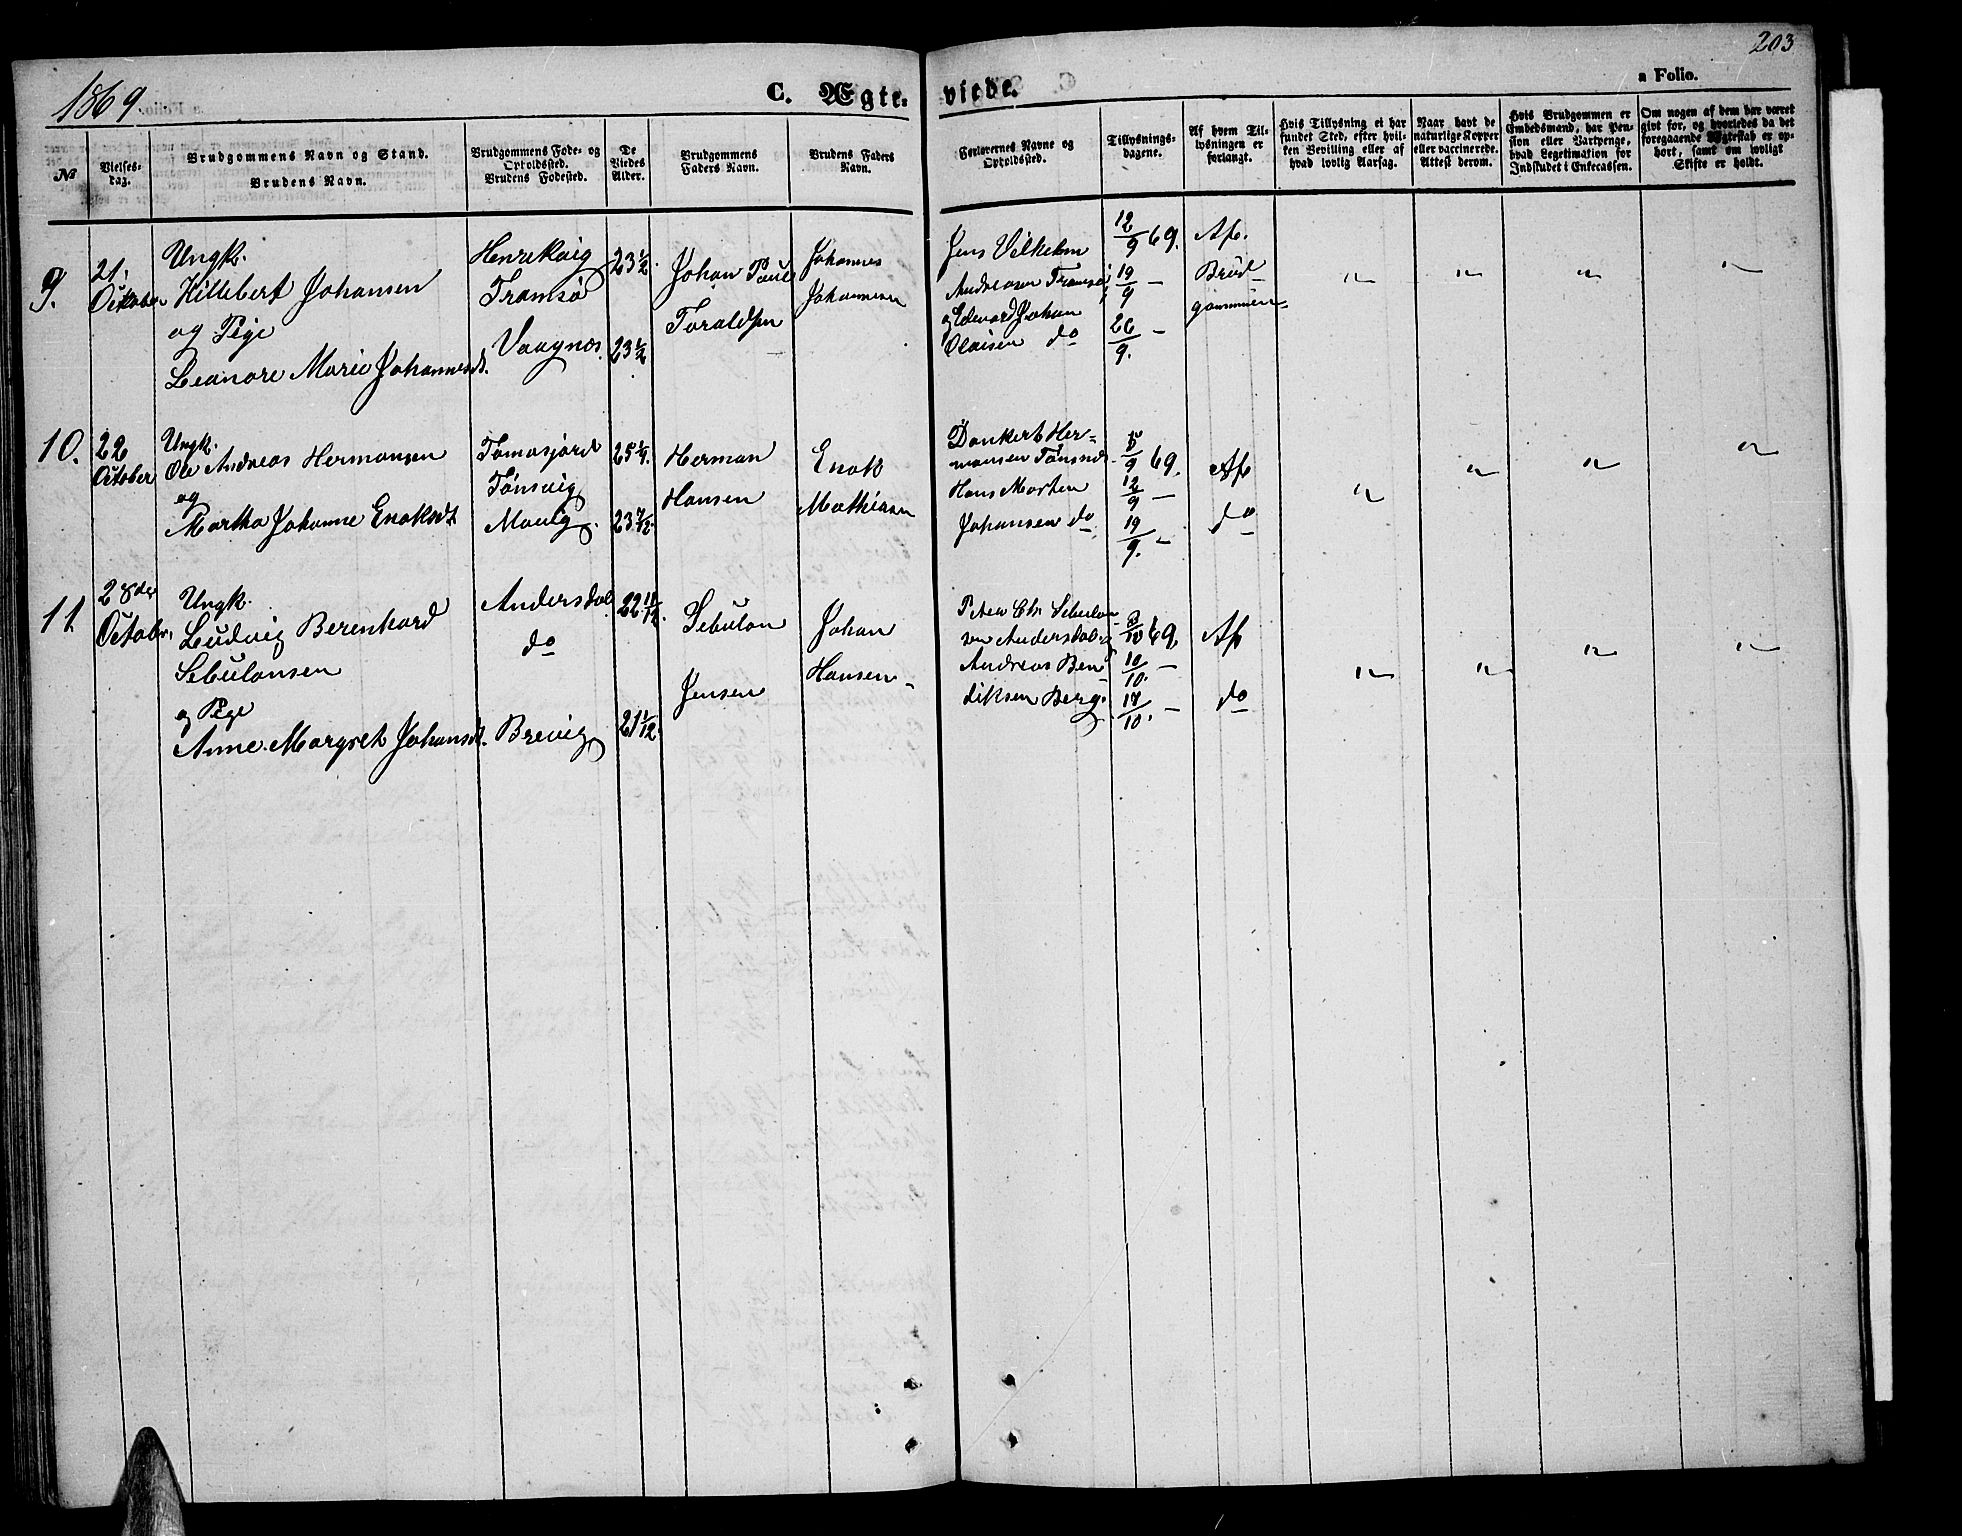 1869.
C. Ægte-
viede.
203
a Folio.
№
Vielses-
dag.
Brudgommens Navn og Stand.
Brudens Navn.
Brudgommens Føde- og
Opholdssted.
Brudens Fødested.
De
Viedes
Alder.
Brudgommens
Faders Navn.
Brudens Faders
Navn.
Forlovernes Navne og
Opholdssted.
Tillysnings-
dagene.
Af hvem Til-
lysningen er
forlangt.
Hvis Tillysning ei har
fundet Sted, efter hvil-
ken Bevilling eller af
hvad lovlig Aarsag.
Naar havt de
naturlige Kopper
eller vaccinerede.
Attest derom.
Hvis Brudgommen er
Embedsmand, har Pen-
sion eller Vartpenge,
hvad Legitimation for
Indskudet i Enkecassen.
Om nogen af dem har været
gift før, og hvorledes da det
foregaaende Ægteskab er op-
hørt, samt om lovligt
Skifte er holdt.
9.
21.
October
Ungk.
Hillebert Johansen
og Pige
Leanore Marie Johannesdt.
Henrikvig
Tromsø
Vaagnes
23 1/2
23 1/2
Johan Paul
Toraldsen
Johannes
Johannesen
Jens Vilhelm
Andreasen Tromsø
og Edevard Johan
Olaisen do
12/9 69.
19/9 —
26/9. —
Af.
Brüd-
gommen
" " " "
10.
22
October
Ungk.
Ole Andreas Hermansen
og
Martha Johanne Enoksdt
Tomasjord
Tønsvig
Mavig.
25 1/4.
23 7/12.
Herman
Hansen
Enok
Mathisen
Dankert Her=
mansen Tønsnes
Hans Morten
Johansen do
5/9 69.
12/9 —
19/9. —
Af
do
" " " "
11
28de
Octobr.
Ungk.
Ludvig Berenhard
Sebulonsen
og Pige
Anne Margret Johansdt.
Andersdal
do
Brevig
22 11/12.
21 1/12.
Sebulon
Jensen
Johan
Hansen
Peter Chr. Sebulon-
sen Andersdal og
Andreas Ben-
diksen Berg
3/10 69
10/10. —
17/10. —
Af
do
" " " "